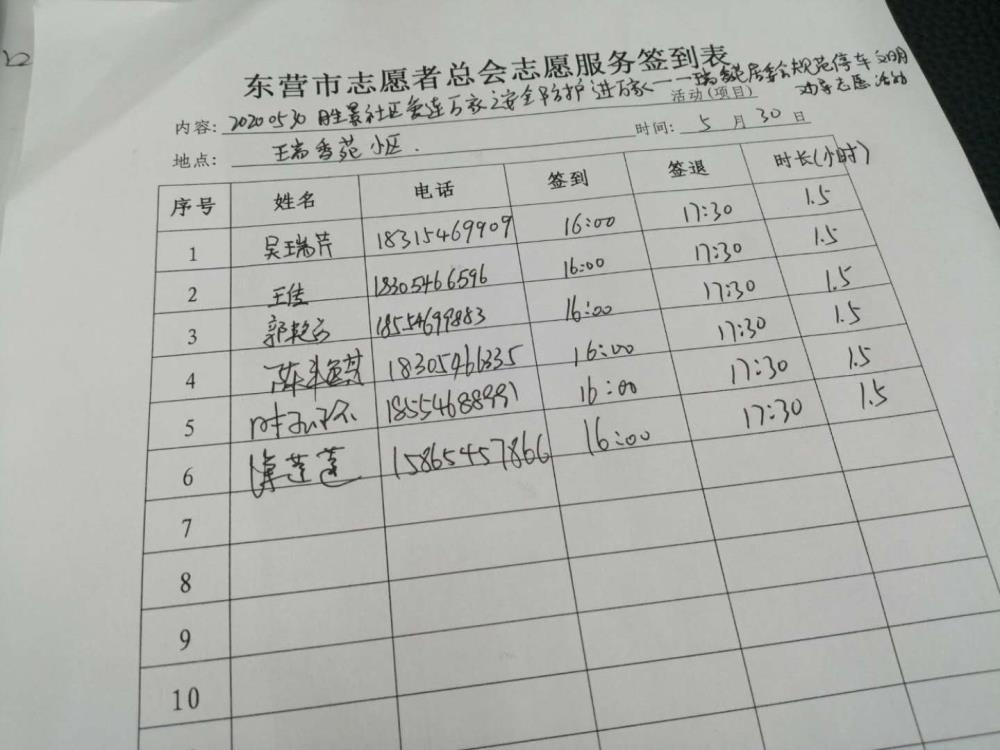 东营市志愿者总会志愿服务签到表
内容: 20200530 胜景社区爱连万家之安全防护进万家——瑞香苑居委会规范停车文明
活动(项目) 劝导志愿活动
时间: 5 月 30 日
地点: 瑞香苑小区.
序号 姓名 电话 签到 签退 时长(小时)
1 吴瑞芹 18315469909 16:00 17:30 1.5
2 王佳 18305466596 16:00 17:30 1.5
3 郭艳云 18554699883 16:00 17:30 1.5
4 陈 18305466335 16:00 17:30 1.5
5 时 18554688991 16:00 17:30 1.5
6 莲莲 15865457866 16:00 17:30 1.5
7
8
9
10